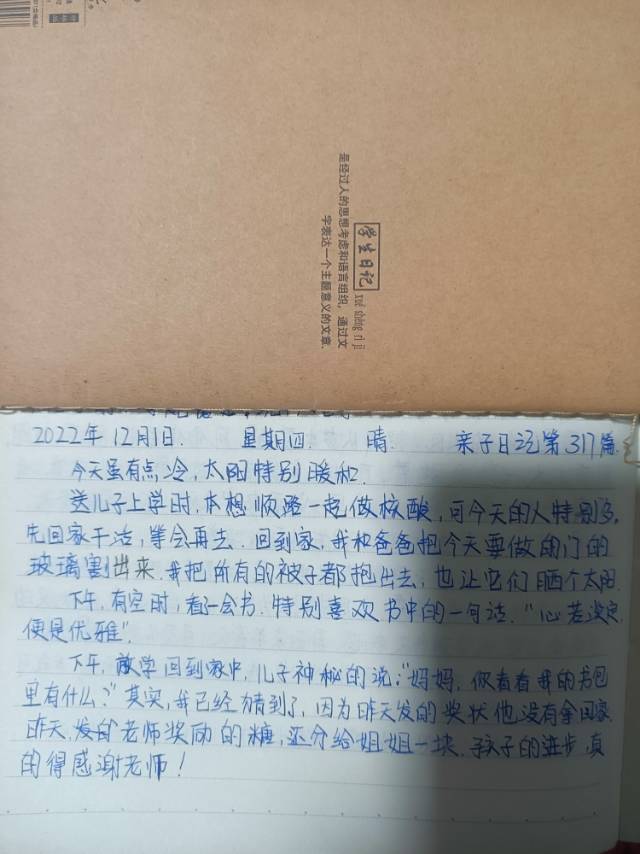 学生日记
xué shēng rì jì
是经过人的思想考虑和语言组织，通过文
字表达一个主题意义的文章.
2022年12月1日. 星期四. 晴. 亲子日记第317篇.
今天虽有点冷,太阳特别暖和.
送儿子上学时,本想顺路一起做核酸,可今天的人特别多,
先回家干活,等会再去.回到家,我和爸爸把今天要做的门的
玻璃割出来.我把所有的被子都抱出去,也让它们晒个太阳.
下午,有空时,看了一会书.特别喜欢书中的一句话."心若淡定,
便是优雅".
下午,放学回到家中,儿子神秘的说:"妈妈,你看看我的书包
里有什么?"其实,我已经猜到了,因为昨天发的奖状他没有拿回家.
昨天,发的老师奖励的糖,还分给姐姐一块.孩子的进步,真
的得感谢老师!